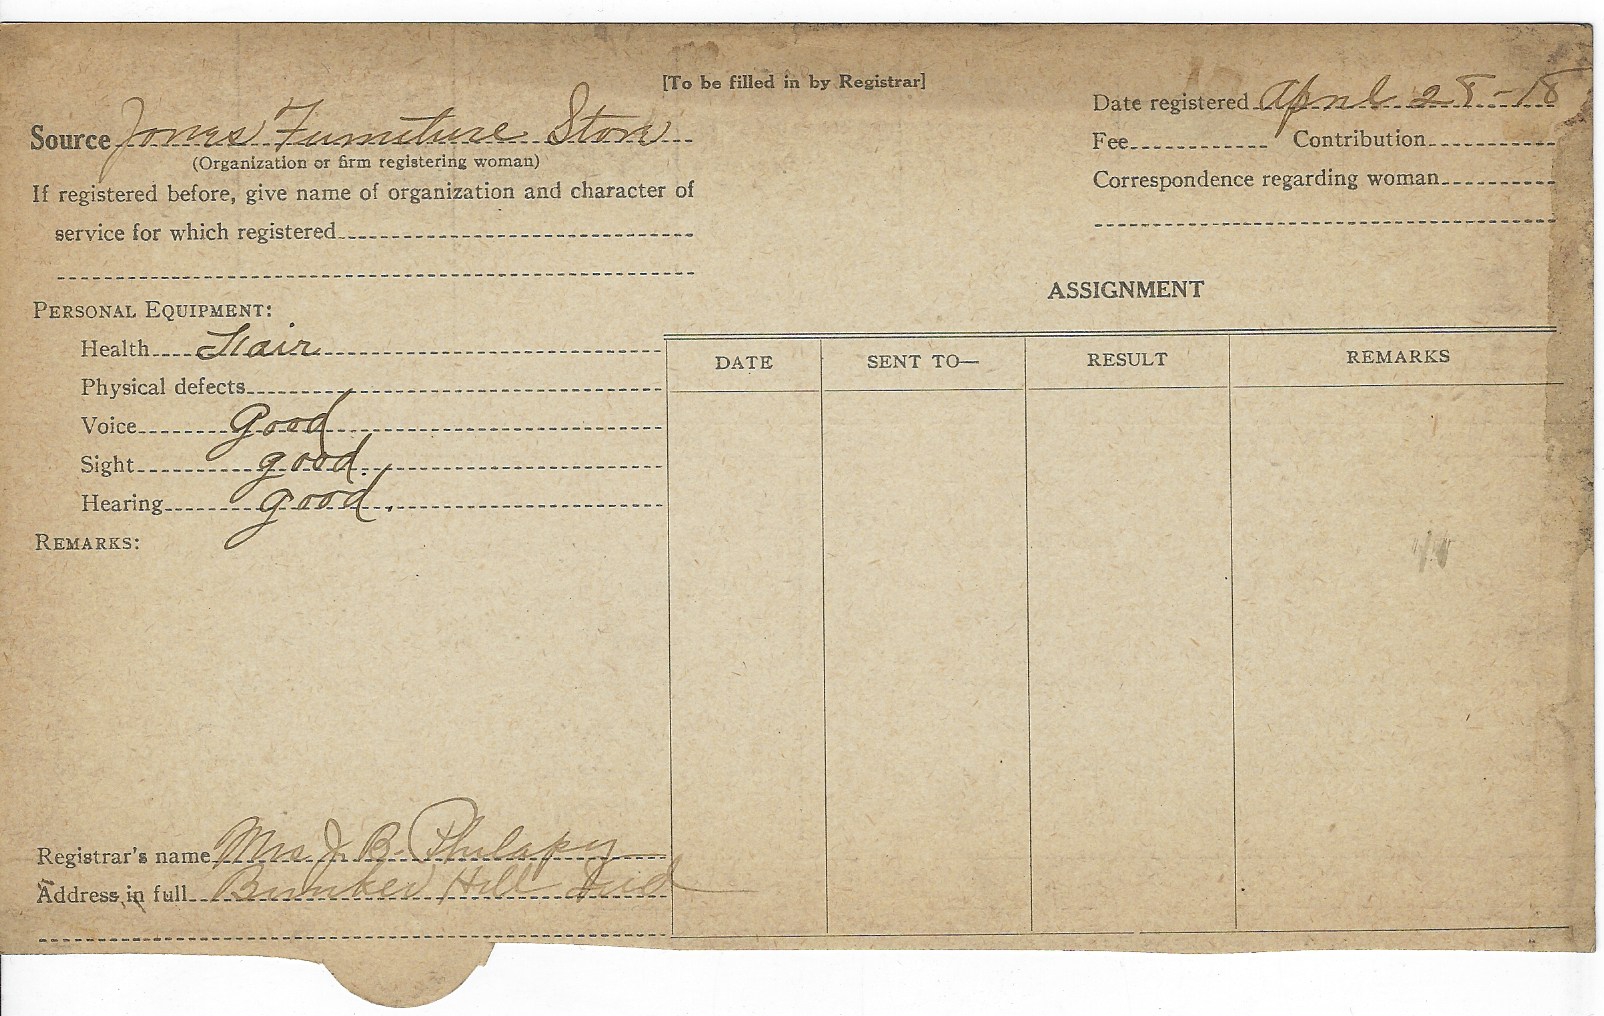 [To be filled in by Registrar]
Source Jones Furniture Store
(Organization or firm registering woman)
If registered before, give name of organization and character of
service for which registered
Date registered April 28-18
Fee Contribution
Correspondence regarding woman
PERSONAL EQUIPMENT:
Health Fair
Physical defects
Voice Good
Sight good.
Hearing good.
REMARKS:
ASSIGNMENT
DATE SENT TO— RESULT REMARKS
Registrar's name Mrs J. B. Philapy
Address in full Bunker Hill Ind